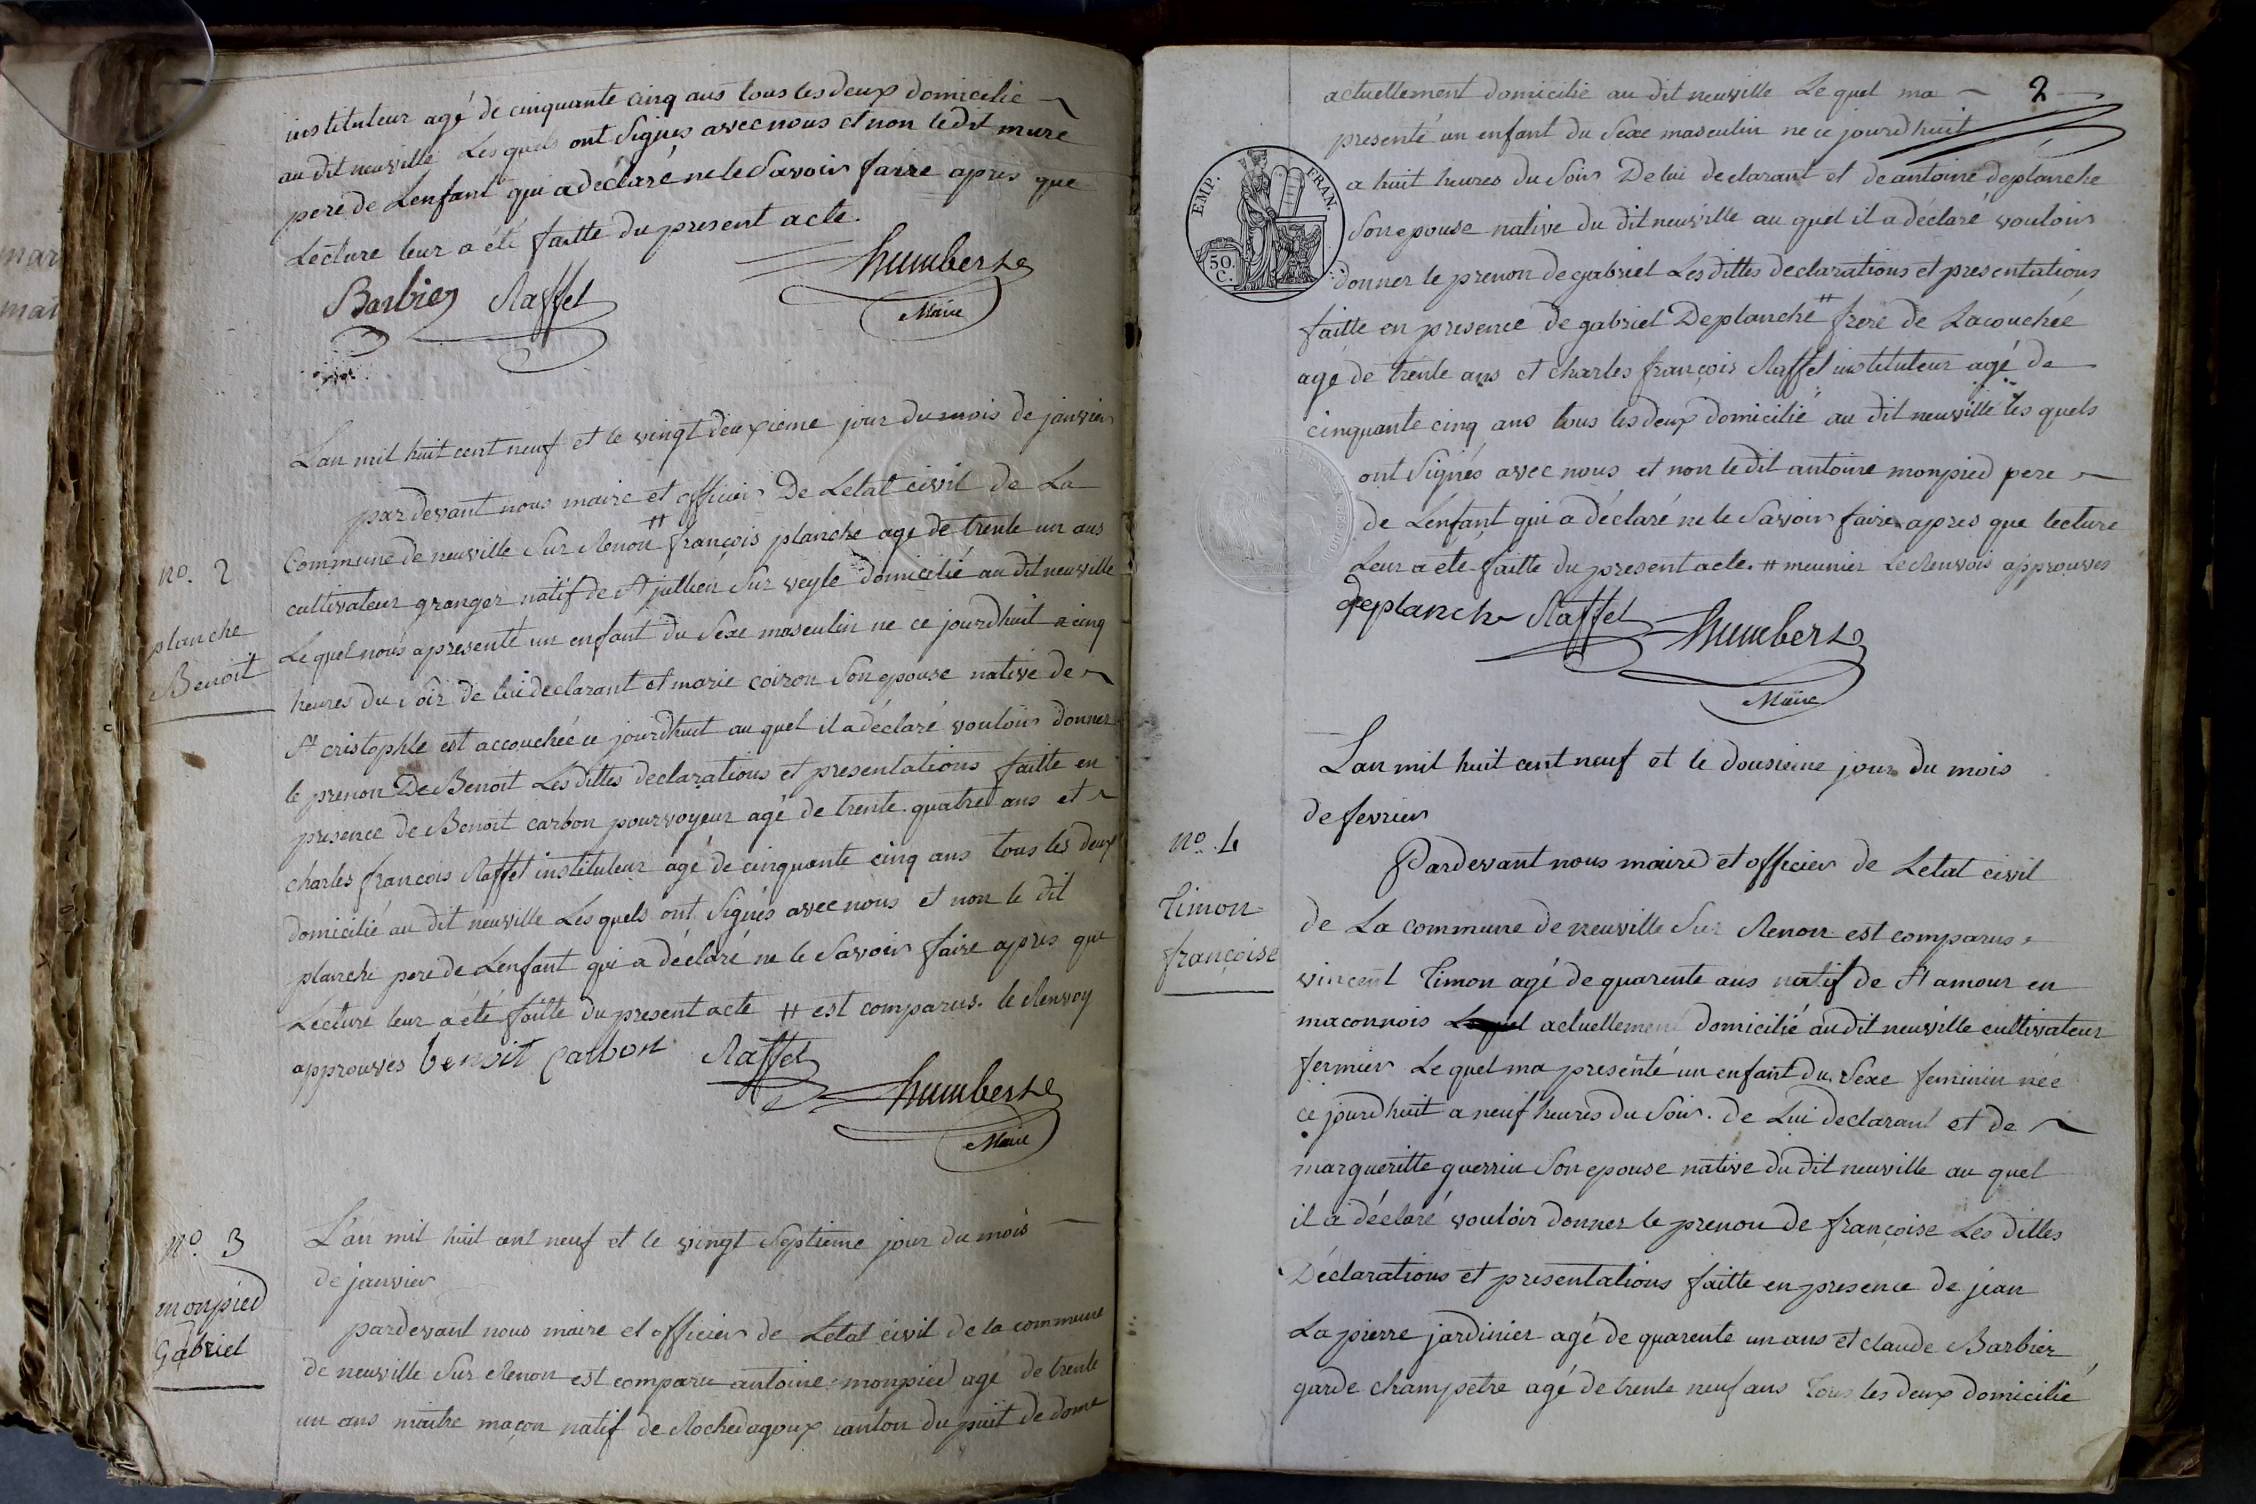 instituteur agé de cinquante cinq ans tous les deux domicilié
au dit neuville Les quels ont Signés avec nous et non ledit mure
pere de Lenfant qui a déclaré ne le Savoir faire apres que
Lecture leur a été faitte du present acte.
Barbier Raffet humbert
Maire
Lan mil huit cent neuf et le vingt deuxieme jour du mois de janvier
pardevant nous maire et officier De Letat civil de La
Commune de neuville Sur Renon # françois planche agé de trente un ans
no. 2
cultivateur granger natif de St jullien Sur veyle domicilié au dit neuville
planche
Benoit
Le quel nous a presenté un enfant du Sexe masculin ne ce jourdhuit a cinq
heures du Soir de lui declarant et marie coiron Son epouse native de
St cristophle est accouchée ce jourdhuit au quel il a déclaré vouloir donner
le prenon De Benoit Les dittes declarations et presentations faitte en
presence de Benoit carbon pourvoyeur agé de trente quatre ans et
charles françois Raffet instituteur agé de cinquante cinq ans tous les deux
domicilié au dit neuville Les quels ont Signés avec nous et non le dit
planche pere de Lenfant qui a déclaré ne le Savoir faire apres que
Lecture leur a été faitte du present acte # est comparus. le Renvoy
approuves benoit carbon Raffet
humbert
Maire
no. 3
monpied
Gabriel
Lan mil huit cent neuf et le vingt Septieme jour du mois
de janvier
pardevant nous maire et officier de Letat civil de la commune
de neuville Sur Renon est comparu antoine monpied agé de trente
un ans maitre maçon natif de Rochedagoux canton du puit de dome
2
actuellement domicilié au dit neuville Le quel ma
presenté un enfant du Sexe masculin ne ce jourdhuit
a huit heures du Soir De lui declarant et de antoine deplanche
Son epouse native du dit neuville au quel il a déclaré vouloir
EMP. FRAN.
50 C.
donner le prenon de gabriel Les dittes declarations et presentations
faitte en presence de gabriel Deplanche # frere de Lacouchée
agé de trente ans et charles françois Raffet instituteur agé de
cinquante cinq ans tous les deux domicilié au dit neuville les quels
ont Signés avec nous et non le dit antoine monpied pere
de Lenfant qui a déclaré ne le Savoir faire apres que lecture
Leur a été faitte du present acte. # meunier Le Renvois approuves
deplanche Raffet humbert
Maire
Lan mil huit cent neuf et le dousieme jour du mois
de fevrier
no. 4
Timon
françoise
Pardevant nous maire et officier de Letat civil
de La commune de neuville Sur Renon est comparus
vincent Timon agé de quarente ans natif de St amour en
maconnois actuellement domicilié au dit neuville cultivateur
fermier Le quel ma presenté un enfant du Sexe feminin née
ce jourdhuit a neuf heures du Soir. de Lui declarant et de
margueritte guerrin Son epouse native du dit neuville au quel
il a déclaré vouloir donner le prenon de françoise Les dittes
Déclarations et presentations faitte en presence de jean
La pierre jardinier agé de quarente un ans et claude Barbier
garde champetre agé de trente neuf ans Tous les deux domicilié